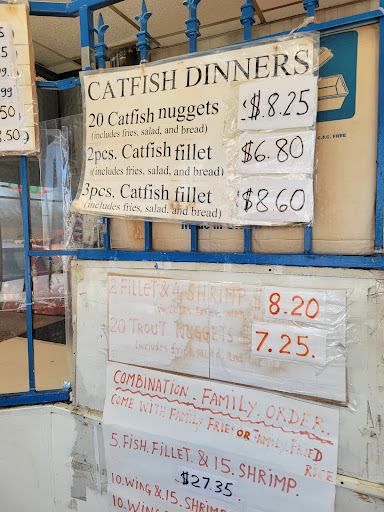 5
.99
99
50
8.50
CATFISH DINNERS
20 Catfish nuggets $.8.25
(includes fries, salad, and bread)
2pcs. Catfish fillet $6.80
(includes fries, salad, and bread)
3pcs. Catfish fillet $8.60
(includes fries, salad, and bread)
2 FILLET & 4 SHRIMP 8.20
20 TROUT NUGGETS 7.25.
(includes fries, salad, and
COMBINATION. FAMILY. ORDER.
COME WITH FAMILY FRIES OR FAMIL. FRIED
RICE
5. FISH. FILLET. & 15. SHRIMP.
$27.35
10. WING & 15. SHRIMP
10. WING